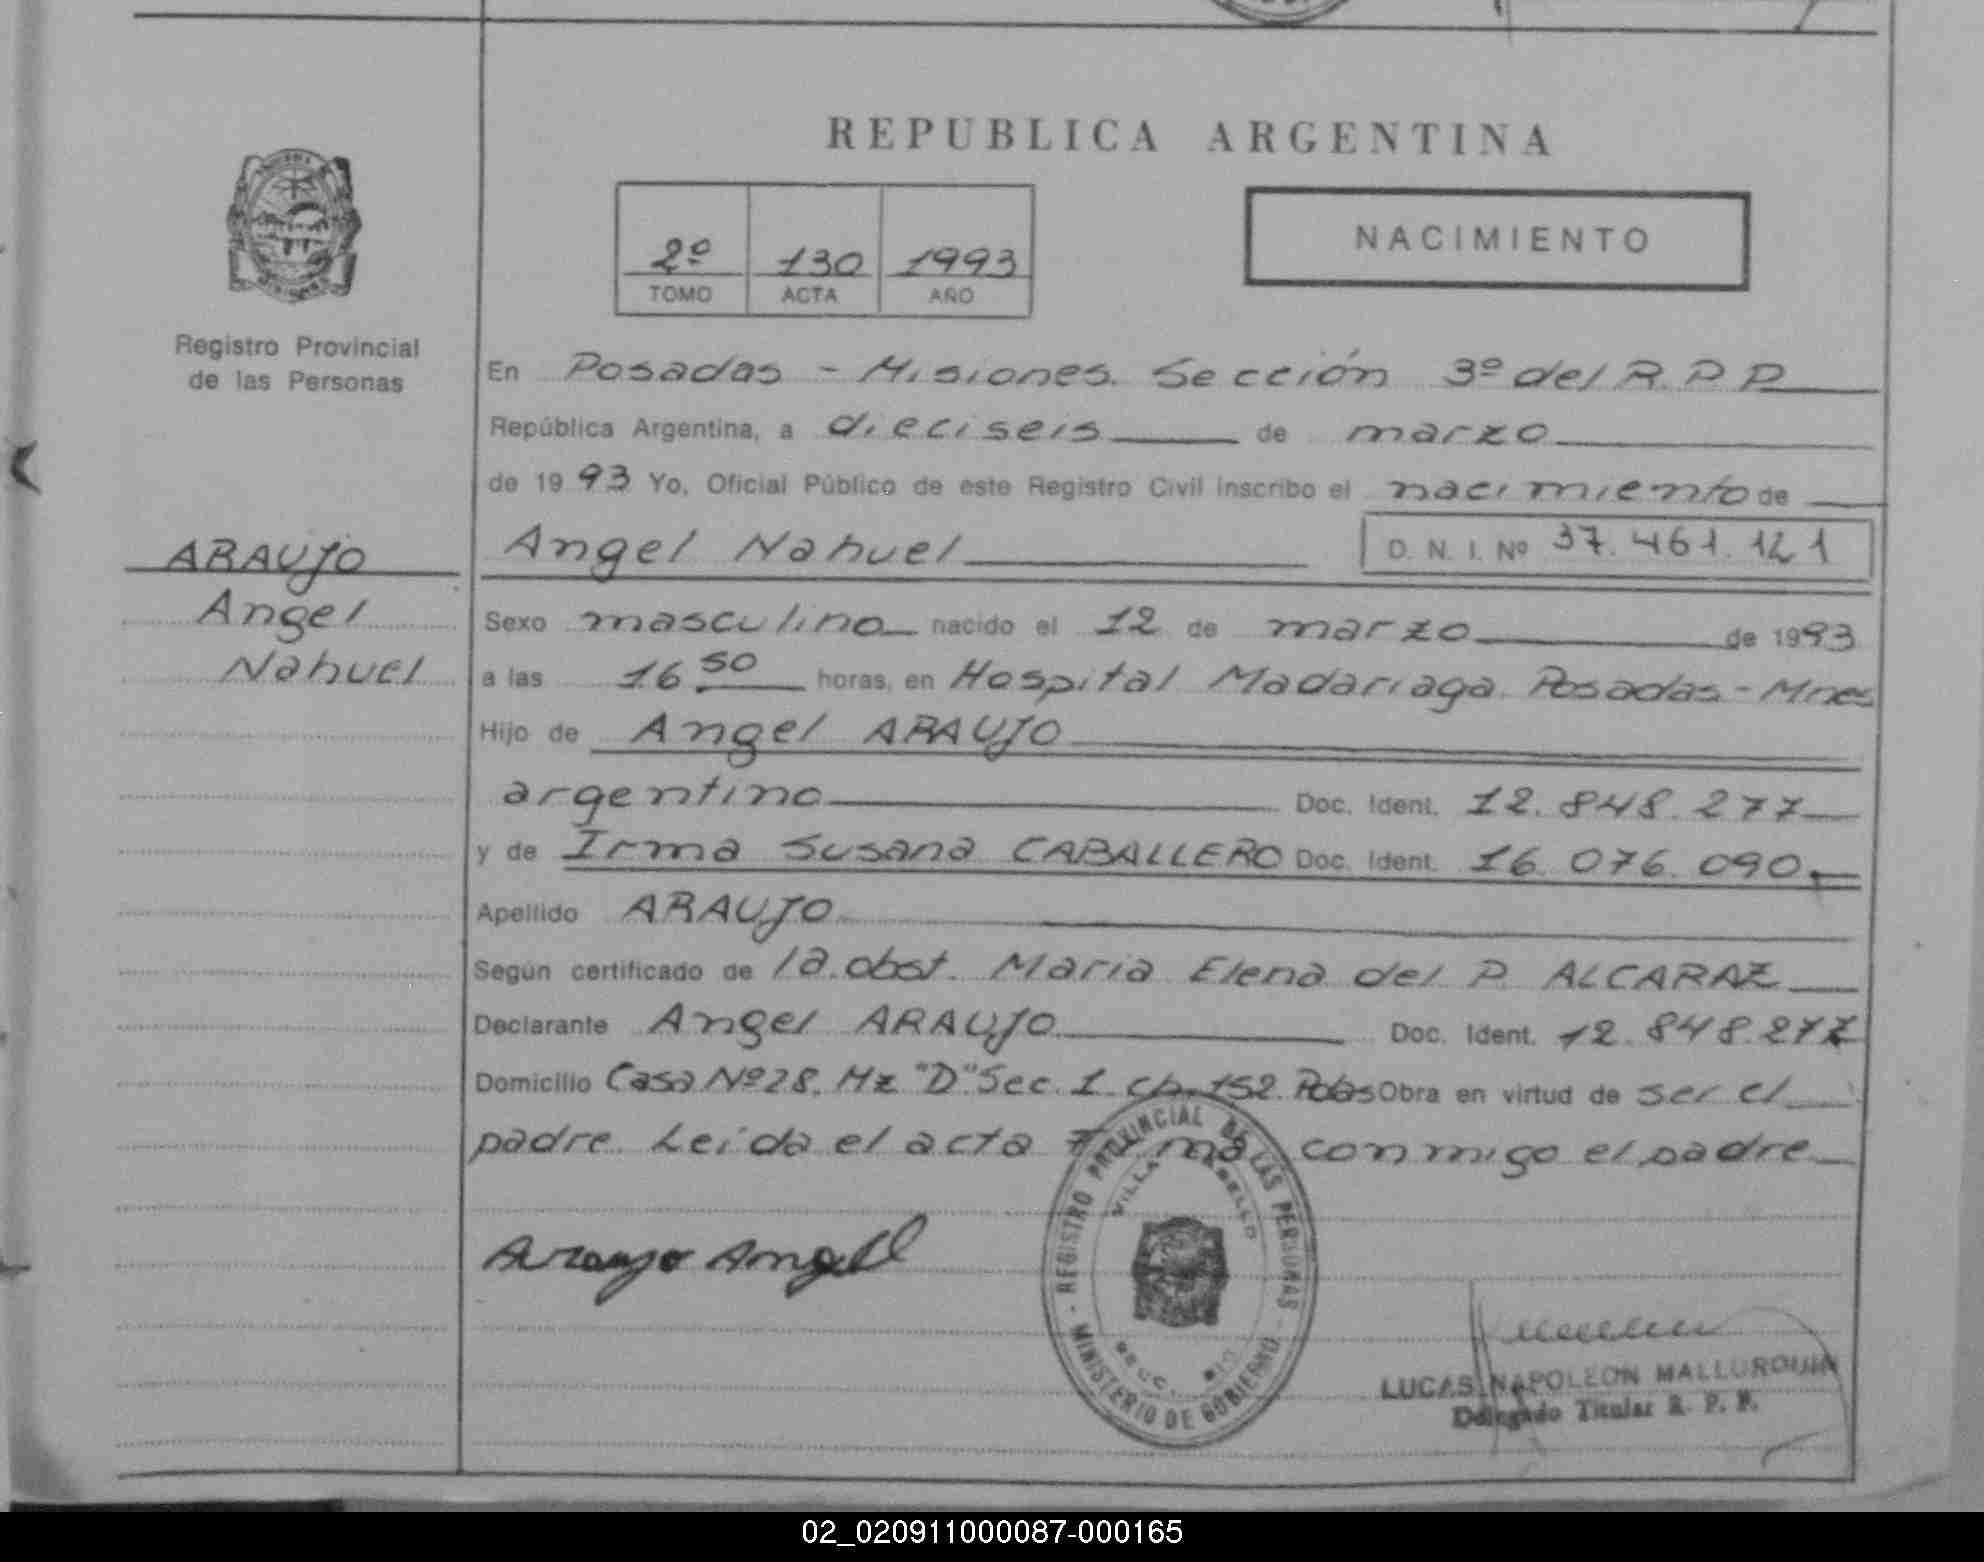 REPUBLICA ARGENTINA
NACIMIENTO
2º 130 1993
TOMO ACTA AÑO
Registro Provincial
de las Personas
En Posadas - Misiones. Sección 3º del R.P.P
República Argentina, a dieciseis de marzo
de 1993 Yo, Oficial Público de este Registro Civil inscribo el nacimiento de
ARAUJO
Angel
Nahuel
Angel Nahuel D. N. I. Nº 37.461.121
Sexo masculino nacido el 12 de marzo de 1993
a las 16 50 horas, en Hospital Madariaga. Posadas - Mnes
Hijo de Angel ARAUJO
argentino Doc. Ident. 12.848.277
y de Irma Susana CABALLERO Doc. Ident. 16.076.090.
Apellido ARAUJO
Según certificado de la obst. Maria Elena del P. ALCARAZ
Declarante Angel ARAUJO Doc. Ident. 12.848.277
Domicilio Casa Nº28. Mz "D" Sec. 1 Ch. 152. Pdas Obra en virtud de ser el
padre. Leida el acta firma conmigo el padre
Araujo Angel
REGISTRO PROVINCIAL DE LAS PERSONAS
VILLA
MINISTERIO DE GOBIERNO
LUCAS NAPOLEON MALLORQUIN
Delegado Titular R. P. P.
02_020911000087-000165